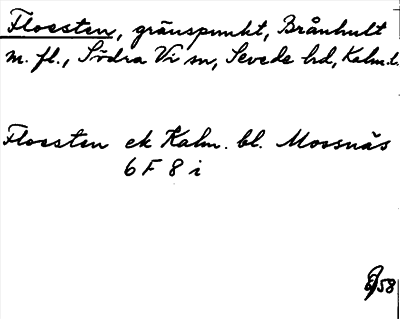 Flossten, gränspunkt, Brånhult
m. fl., Södra Vi sn, Sevede hd, Kalm. l.
Flossten ek Kalm. bl. Mossnäs
6 F 8 i
58